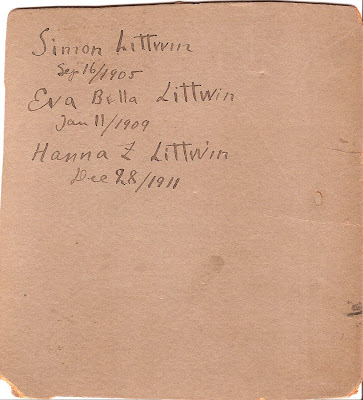 Simon Littwin
Sep 16/1905
Eva Bella Littwin
Jan 11/1909
Hanna Z Littwin
Dec 28/1911